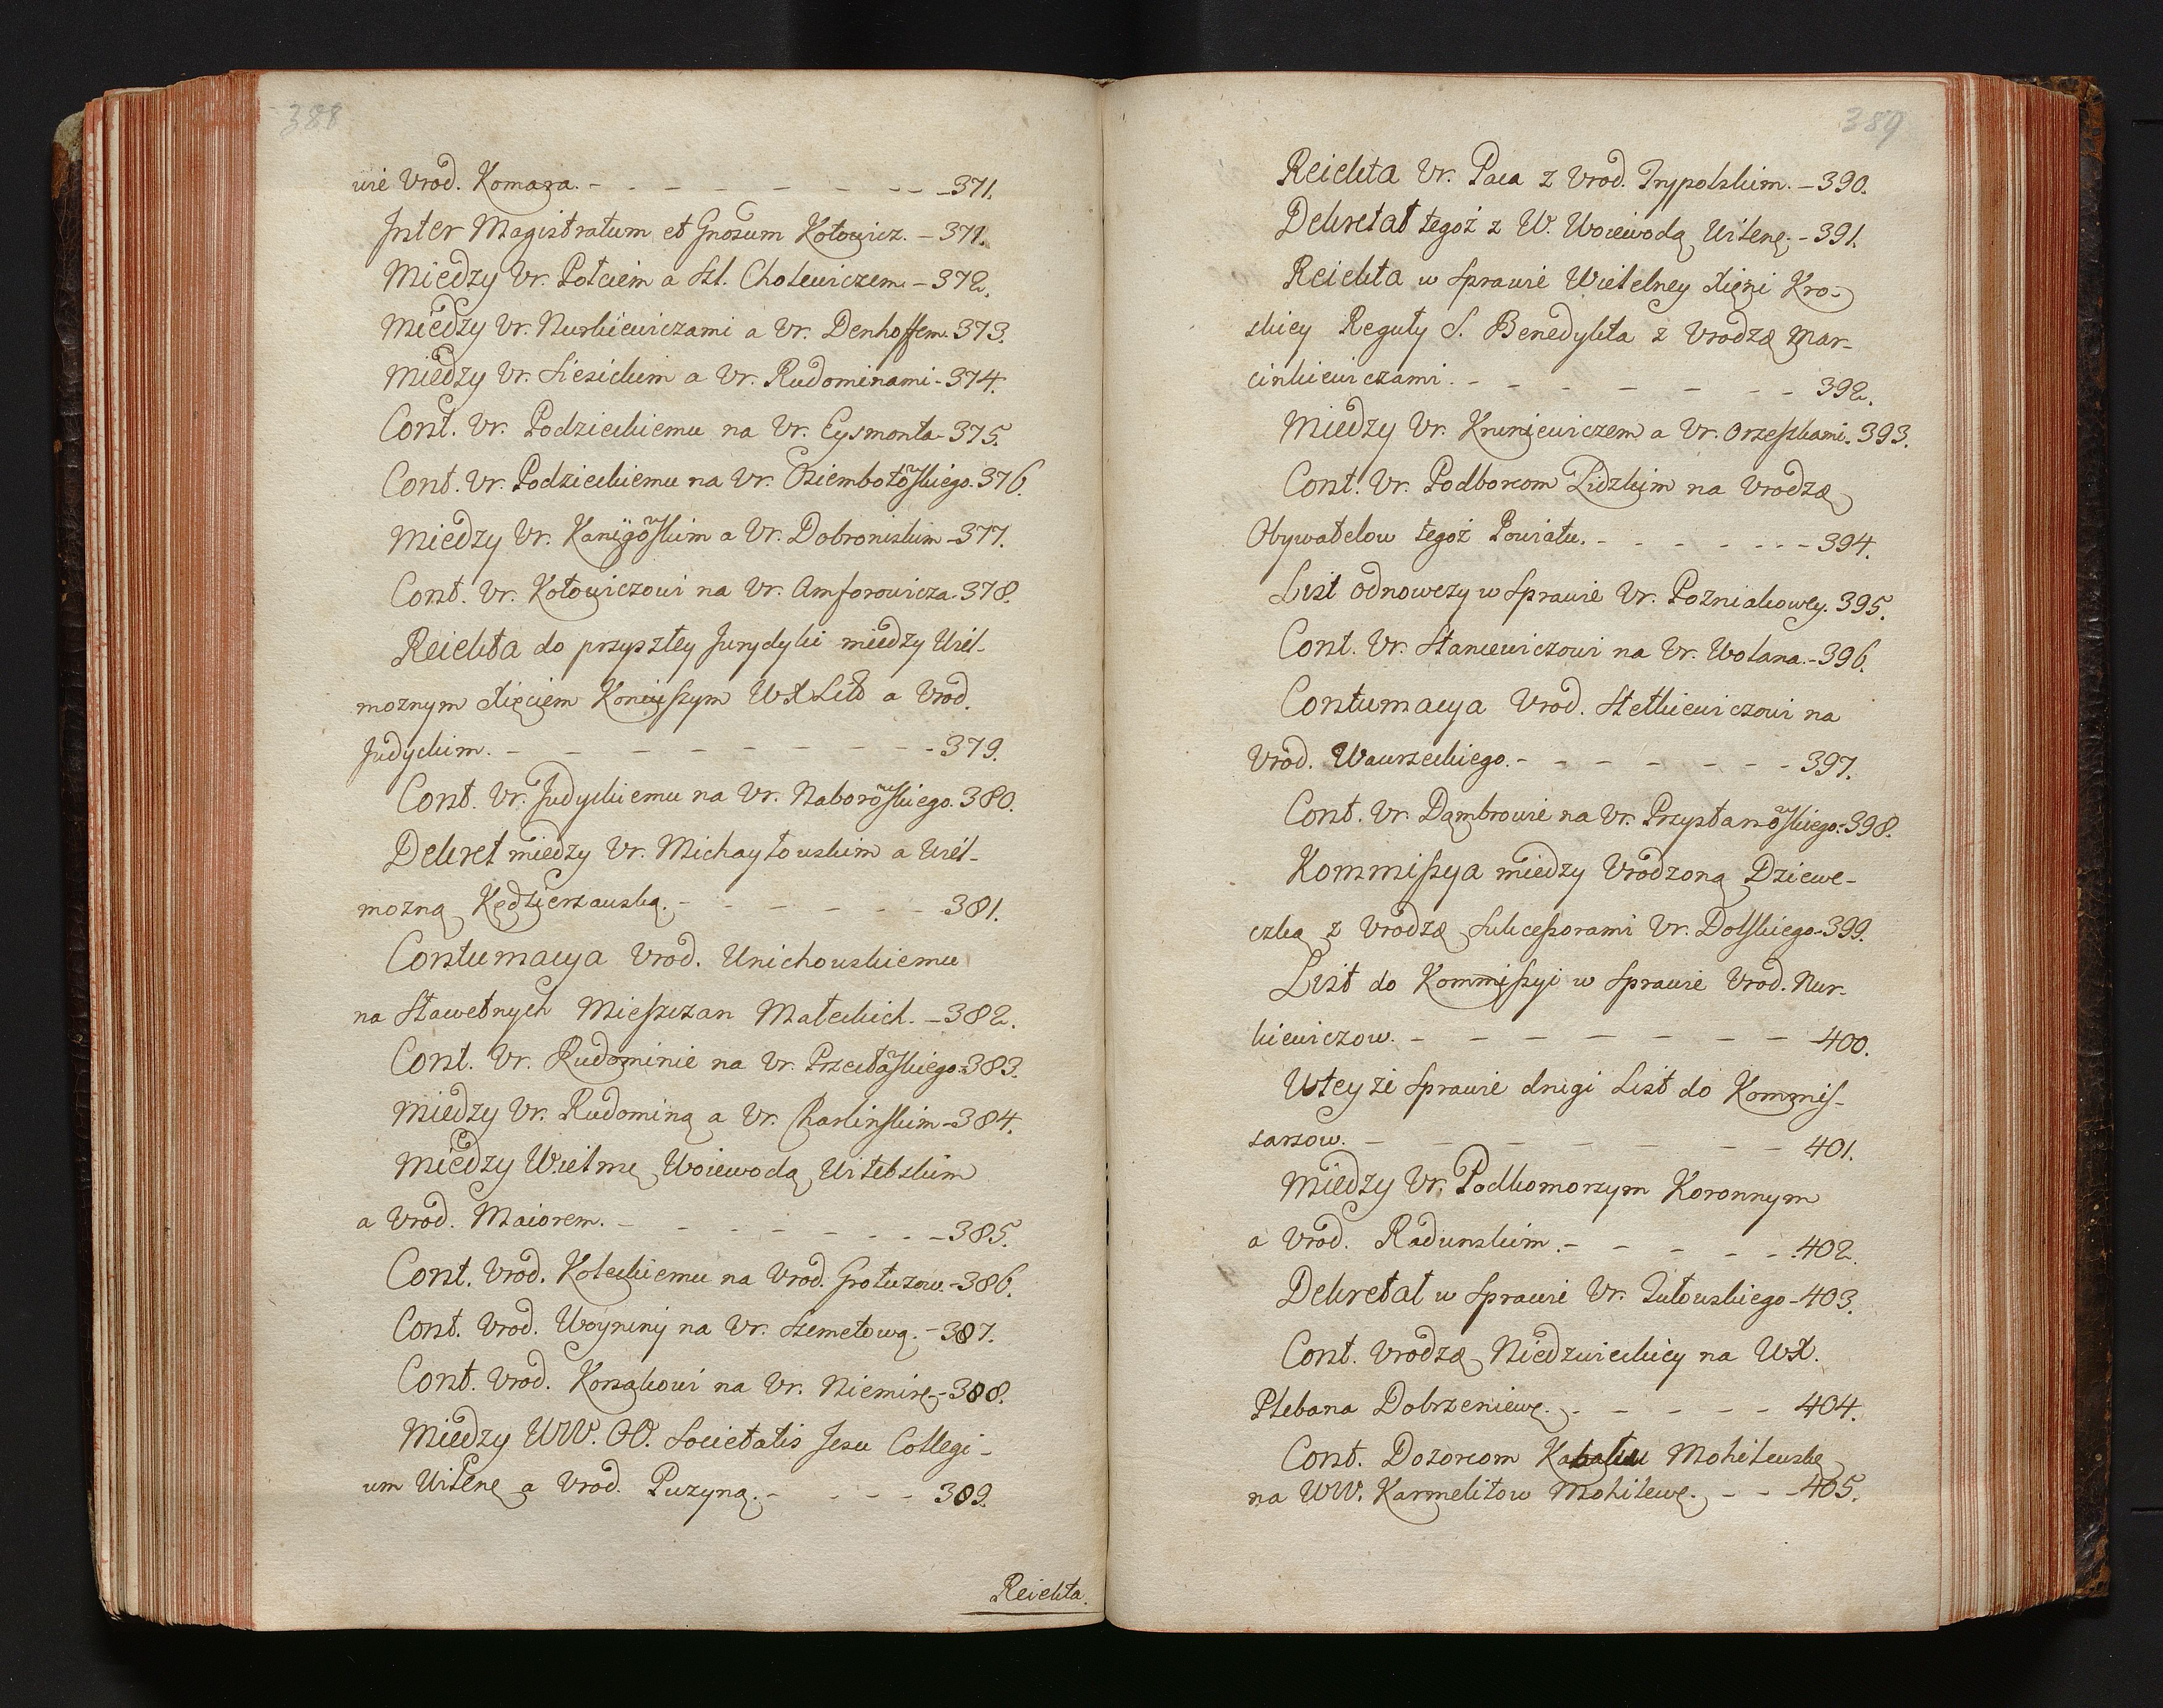 388
wie Vrod. Komara. - - - - - - - - 371.
Inter Magistratum et Gnosum Kotowicz. - 371.
Miedzy Vr. Potciem a Szl. Cholewiczem. - 372.
Miedzy Vr. Nurkiewiczami a Vr. Denhoffem. 373.
Miedzy Vr. Siesickim a Vr. Rudominami - 374.
Cont. Vr. Podzieckiemu na Vr. Eysmonta - 375.
Cont. Vr. Podzieckiemu na Vr. Osiembłowskiego. 376.
Miedzy Vr. Kanigowskim a Vr. Dobroniskim - 377.
Cont. Vr. Kotowiczowi na Vr. Amforowicza. 378.
Reiekta do przyszłey Jurydyki miedzy Wiel-
moznym Xięciem Koniuszym WXLitt a Vrod.
Judyckim. - - - - - - - - 379.
Cont. Vr. Judyckiemu na Vr. Naborowskiego. 380.
Dekret miedzy Vr. Michayłowskim a Wiel-
mozną Kędzierzawską. - - - - - - 381.
Contumacya Vrod. Unichowskiemu
na Sławetnych Mieszczan Małeckich. - 382.
Cont. Vr. Rudominie na Vr. Przecławskiego. 383.
Miedzy Vr. Rudominą a Vr. Charlinskim - 384.
Miedzy Wielmę Woiewodą Witebskim
a Vrod. Maiorem. - - - - - - - 385.
Cont. Vrod. Koleckiemu na Vrod. Grotuzow. - 386.
Cont. Vrod. Woyniny na Vr. Szemetową. - 387.
Cont. Vrod. Korsakowi na Vr. Niemirę - 388.
Miedzy WW. OO. Societatis Jesu Collegi-
um Wilenę a Vrod. Puzyną. - - - - 389.
Reiekta.
389
Reiekta Vr. Paca z Vrod. Trypolskim. - 390.
Dekretal tegoż z W. Woiewodą Wilenę. - 391.
Reiekta w Sprawie Wielebney Xięni Kro-
skiey Reguły S. Benedykta z Vrodzę Mar-
cinkiewiczami. - - - - - - - 392.
Miedzy Vr. Kruniewiczem a Vr. Orzeszkami. 393.
Cont. Vr. Podborcom Lidzkim na Vrodzę
Obywatelow tegoż Powiatu. - - - - - - 394.
List odnowczy w Sprawie Vr. Pozniakowey. 395.
Cont. Vr. Stancewiczowi na Vr. Wolana. - 396.
Contumacya Vrod. Stetkiewiczowi na
Vrod. Wawrzeckiego. - - - - - - - 397.
Cont. Vr. Dąmbrowie na Vr. Przystanowskiego: 398.
Kommissya miedzy Vrodzoną Dziewe-
czką z Vrodzę Sukcessorami Vr. Dolskiego. 399.
List do Kommissyi w Sprawie Vrod. Nur-
kiewiczow. - - - - - - - - 400.
Wteyże Sprawie drugi List do Kommis-
sarzow. - - - - - - - - 401.
Miedzy Vr. Podkomorzym Koronnym
a Vrod. Radunskim. - - - - - 402.
Dekretal w Sprawie Vr. Zutowskiego - 403.
Cont. Vrodzę Niedzwieckiey na WX.
Plebana Dobrzeniewę. - - - - - 404.
Cont. Dozorcom Kahału Mohilewskę
na WW. Karmelitow Mohilewę. - - - 405.